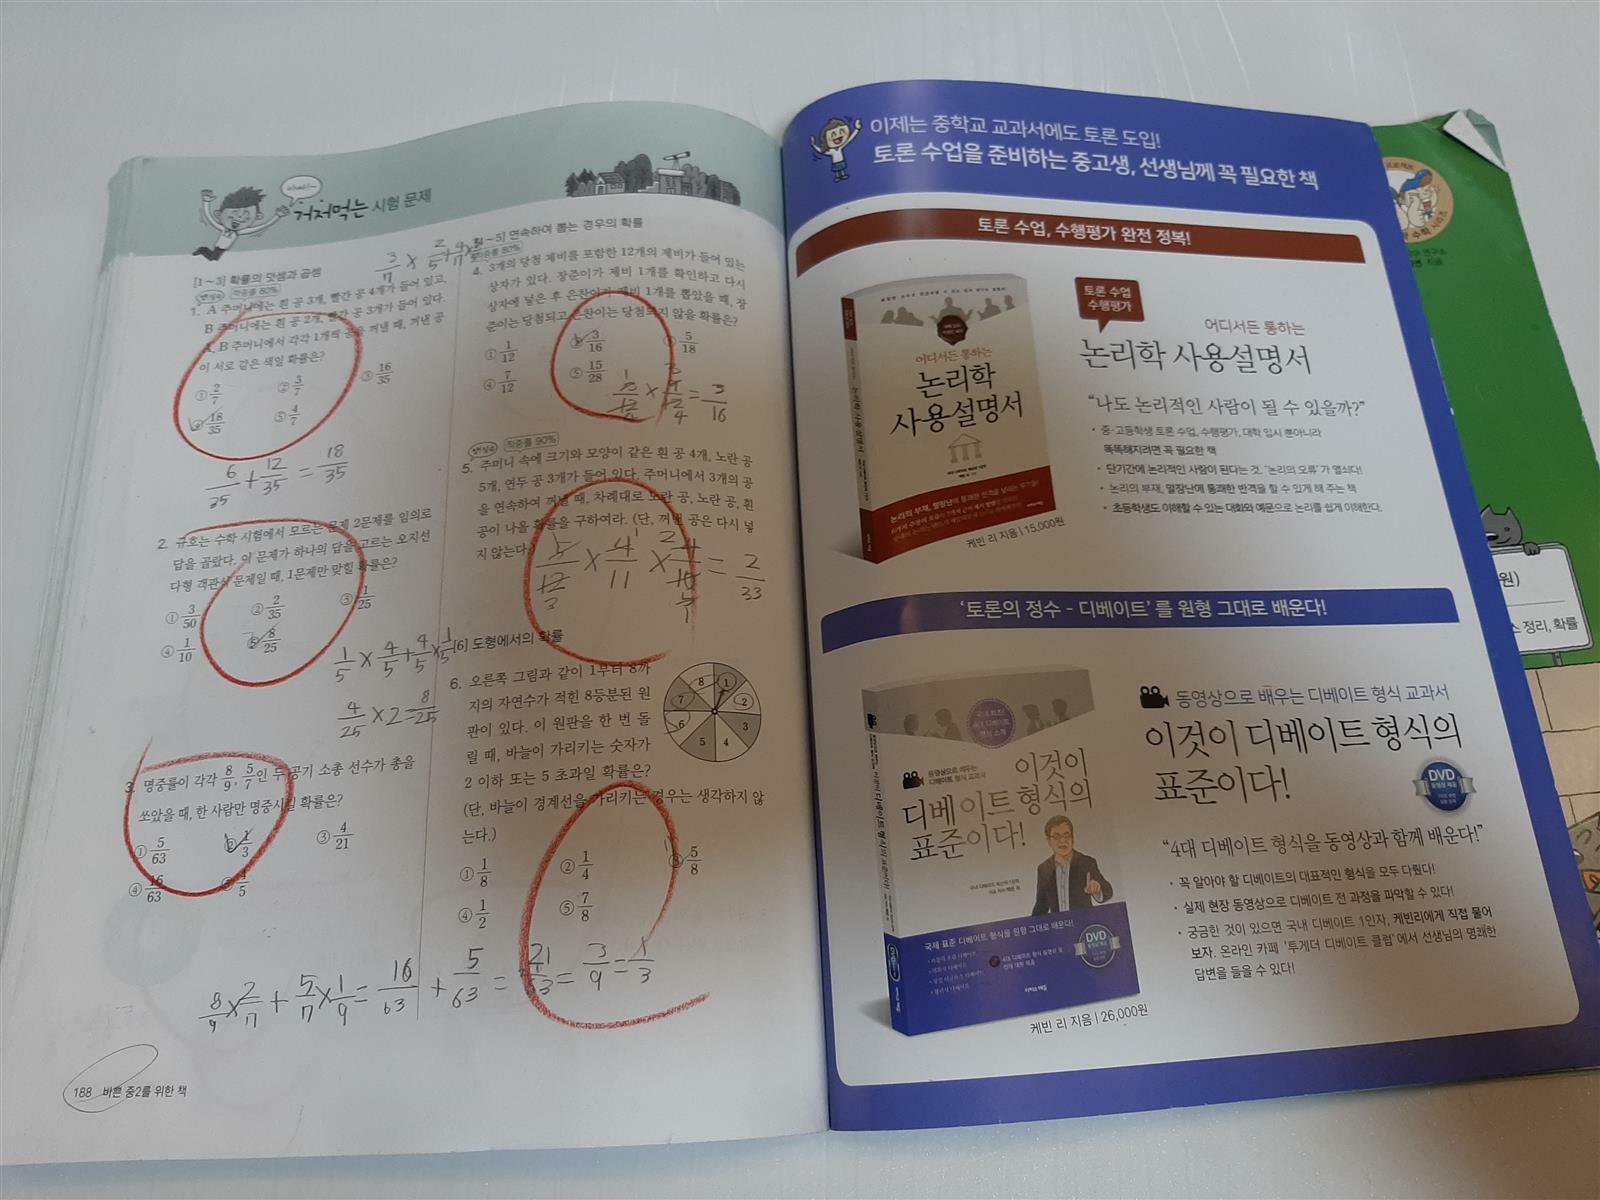 아하~
거저먹는 시험 문제
[1~3] 확률의 덧셈과 곱셈
적중률 80%
1. A 주머니에는 흰 공 3개, 빨간 공 4개가 들어 있고,
B 주머니에는 흰 공 2개, 빨간 공 3개가 들어 있다.
A, B 주머니에서 각각 1개씩 공을 꺼낼 때, 꺼낸 공
이 서로 같은 색일 확률은?
① 2/7 ② 3/7 ③ 16/35
④ 18/35 ⑤ 4/7
6/35 + 12/35 = 18/35
2. 규호는 수학 시험에서 모르는 문제 2문제를 임의로
답을 골랐다. 이 문제가 하나의 답을 고르는 오지선
다형 객관식 문제일 때, 1문제만 맞힐 확률은?
① 3/50 ② 2/35 ③ 1/25
④ 1/10 ⑤ 8/25
1/5 × 4/5 + 4/5 × 1/5
4/25 × 2 = 8/25
3. 명중률이 각각 8/9, 5/7인 두 공기 소총 선수가 총을
쏘았을 때, 한 사람만 명중시킬 확률은?
① 5/63 ② 1/3 ③ 4/21
④ 16/63 ⑤ 4/5
8/9 × 2/7 + 5/7 × 1/9 = 16/63 + 5/63 = 21/63 = 3/9 = 1/3
188 바쁜 중2를 위한 책
3/7 × 2/5 + 4/7 ×
~5] 연속하여 뽑는 경우의 확률
적중률 80%
4. 3개의 당첨 제비를 포함한 12개의 제비가 들어 있는
상자가 있다. 장준이가 제비 1개를 확인하고 다시
상자에 넣은 후 은찬이가 제비 1개를 뽑았을 때, 장
준이는 당첨되고 은찬이는 당첨되지 않을 확률은?
① 1/12 ② 3/16 ③ 5/18
④ 7/12 ⑤ 15/28
3/12 × 9/12 = 3/16
적중률 90%
5. 주머니 속에 크기와 모양이 같은 흰 공 4개, 노란 공
5개, 연두 공 3개가 들어 있다. 주머니에서 3개의 공
을 연속하여 꺼낼 때, 차례대로 노란 공, 노란 공, 흰
공이 나올 확률을 구하여라. (단, 꺼낸 공은 다시 넣
지 않는다.)
5/12 × 4/11 × 4/10 = 2/33
[6] 도형에서의 확률
6. 오른쪽 그림과 같이 1부터 8까
지의 자연수가 적힌 8등분된 원
판이 있다. 이 원판을 한 번 돌
릴 때, 바늘이 가리키는 숫자가
2 이하 또는 5 초과일 확률은?
(단, 바늘이 경계선을 가리키는 경우는 생각하지 않
는다.)
1 2 3 4 5 6 7 8
① 1/8 ② 1/4 ③ 5/8
④ 1/2 ⑤ 7/8
이제는 중학교 교과서에도 토론 도입!
토론 수업을 준비하는 중고생, 선생님께 꼭 필요한 책
토론 수업, 수행평가 완전 정복!
어디서든 통하는
논리학
사용설명서
케빈 리 지음 | 15,000원
토론 수업
수행평가
어디서든 통하는
논리학 사용설명서
“나도 논리적인 사람이 될 수 있을까?”
• 중·고등학생 토론 수업, 수행평가, 대학 입시 뿐아니라
똑똑해지려면 꼭 필요한 책
• 단기간에 논리적인 사람이 된다는 것. '논리의 오류'가 열쇠다!
• 논리의 부재, 말장난에 통쾌한 반격을 할 수 있게 해 주는 책
• 초등학생도 이해할 수 있는 대화와 예문으로 논리를 쉽게 이해한다.
'토론의 정수 - 디베이트'를 원형 그대로 배운다!
동영상으로 배우는
디베이트 형식 교과서
이것이
디베이트 형식의
표준이다!
국제 표준 디베이트 형식을 원형 그대로 배운다!
DVD
케빈 리 지음 | 26,000원
동영상으로 배우는 디베이트 형식 교과서
이것이 디베이트 형식의
표준이다!
DVD
“4대 디베이트 형식을 동영상과 함께 배운다!”
• 꼭 알아야 할 디베이트의 대표적인 형식을 모두 다뤘다!
• 실제 현장 동영상으로 디베이트 전 과정을 파악할 수 있다!
• 궁금한 것이 있으면 국내 디베이트 1인자, 케빈리에게 직접 물어
보자. 온라인 카페 '투게더 디베이트 클럽'에서 선생님의 명쾌한
답변을 들을 수 있다!
수학 시리즈
지음
원)
정리, 확률